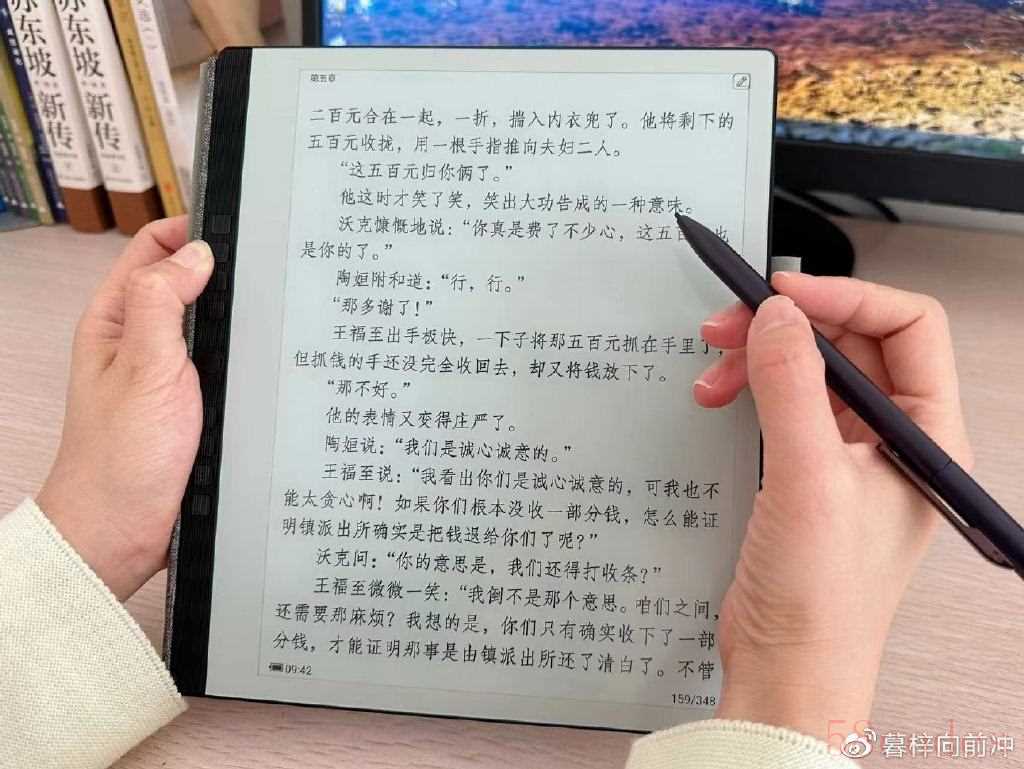 苏东坡新传
苏东坡新传
第五章
二百元合在一起，一折，揣入内衣兜了。他将剩下的
五百元收拢，用一根手指推向夫妇二人。
“这五百元归你俩了。”
他这时才笑了笑，笑出大功告成的一种意味。
沃克慷慨地说：“你真是费了不少心，这五百也
是你的了。”
陶姮附和道：“行，行。”
“那多谢了！”
王福至出手极快，一下子将那五百元抓在手里了，
但抓钱的手还没完全收回去，却又将钱放下了。
“那不好。”
他的表情又变得庄严了。
陶姮说：“我们是诚心诚意的。”
王福至说：“我看出你们是诚心诚意的，可我也不
能太贪心啊！如果你们根本没收一部分钱，怎么能证
明镇派出所确实是把钱退给你们了呢？”
沃克问：“你的意思是，我们还得打收条？”
王福至微微一笑：“我倒不是那个意思。咱们之间，
还需要那麻烦？我想的是，你们只有确实收下了一部
分钱，才能证明那事是由镇派出所还了清白了。不管
09:42
159/348
暮梓向前冲